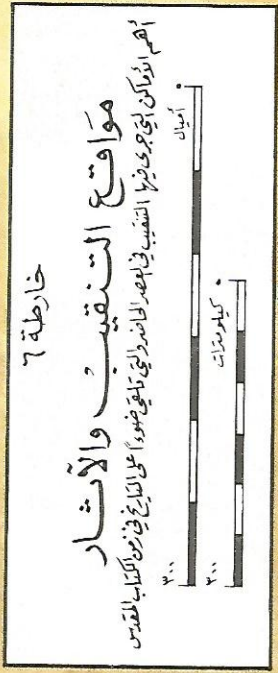 خارطة ٦
مواقع التنقيب والآثار
أهم الأماكن التي جرى فيها التنقيب في العصر الحاضر والتي تلقي ضوءاً على التاريخ في زمن الكتاب المقدس
٣٠٠ أميال ٠
٣٠٠ كيلومترات ٠